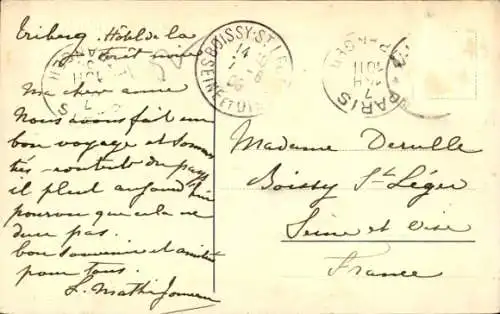 Triberg. Hôtel de la
Forêt noire
Ma chère amie
Nous avons fait un
bon voyage et sommes
très contents du pays
il pleut aujourd'hui
pourvu que cela ne
dure pas.
bon souvenir et amitiés
pour tous.
L. Mathi
BOISSY-ST-LÉGER
14
SEINE ET OISE
PARIS
7
Madame Derulle
Boissy St Léger
Seine et Oise
France